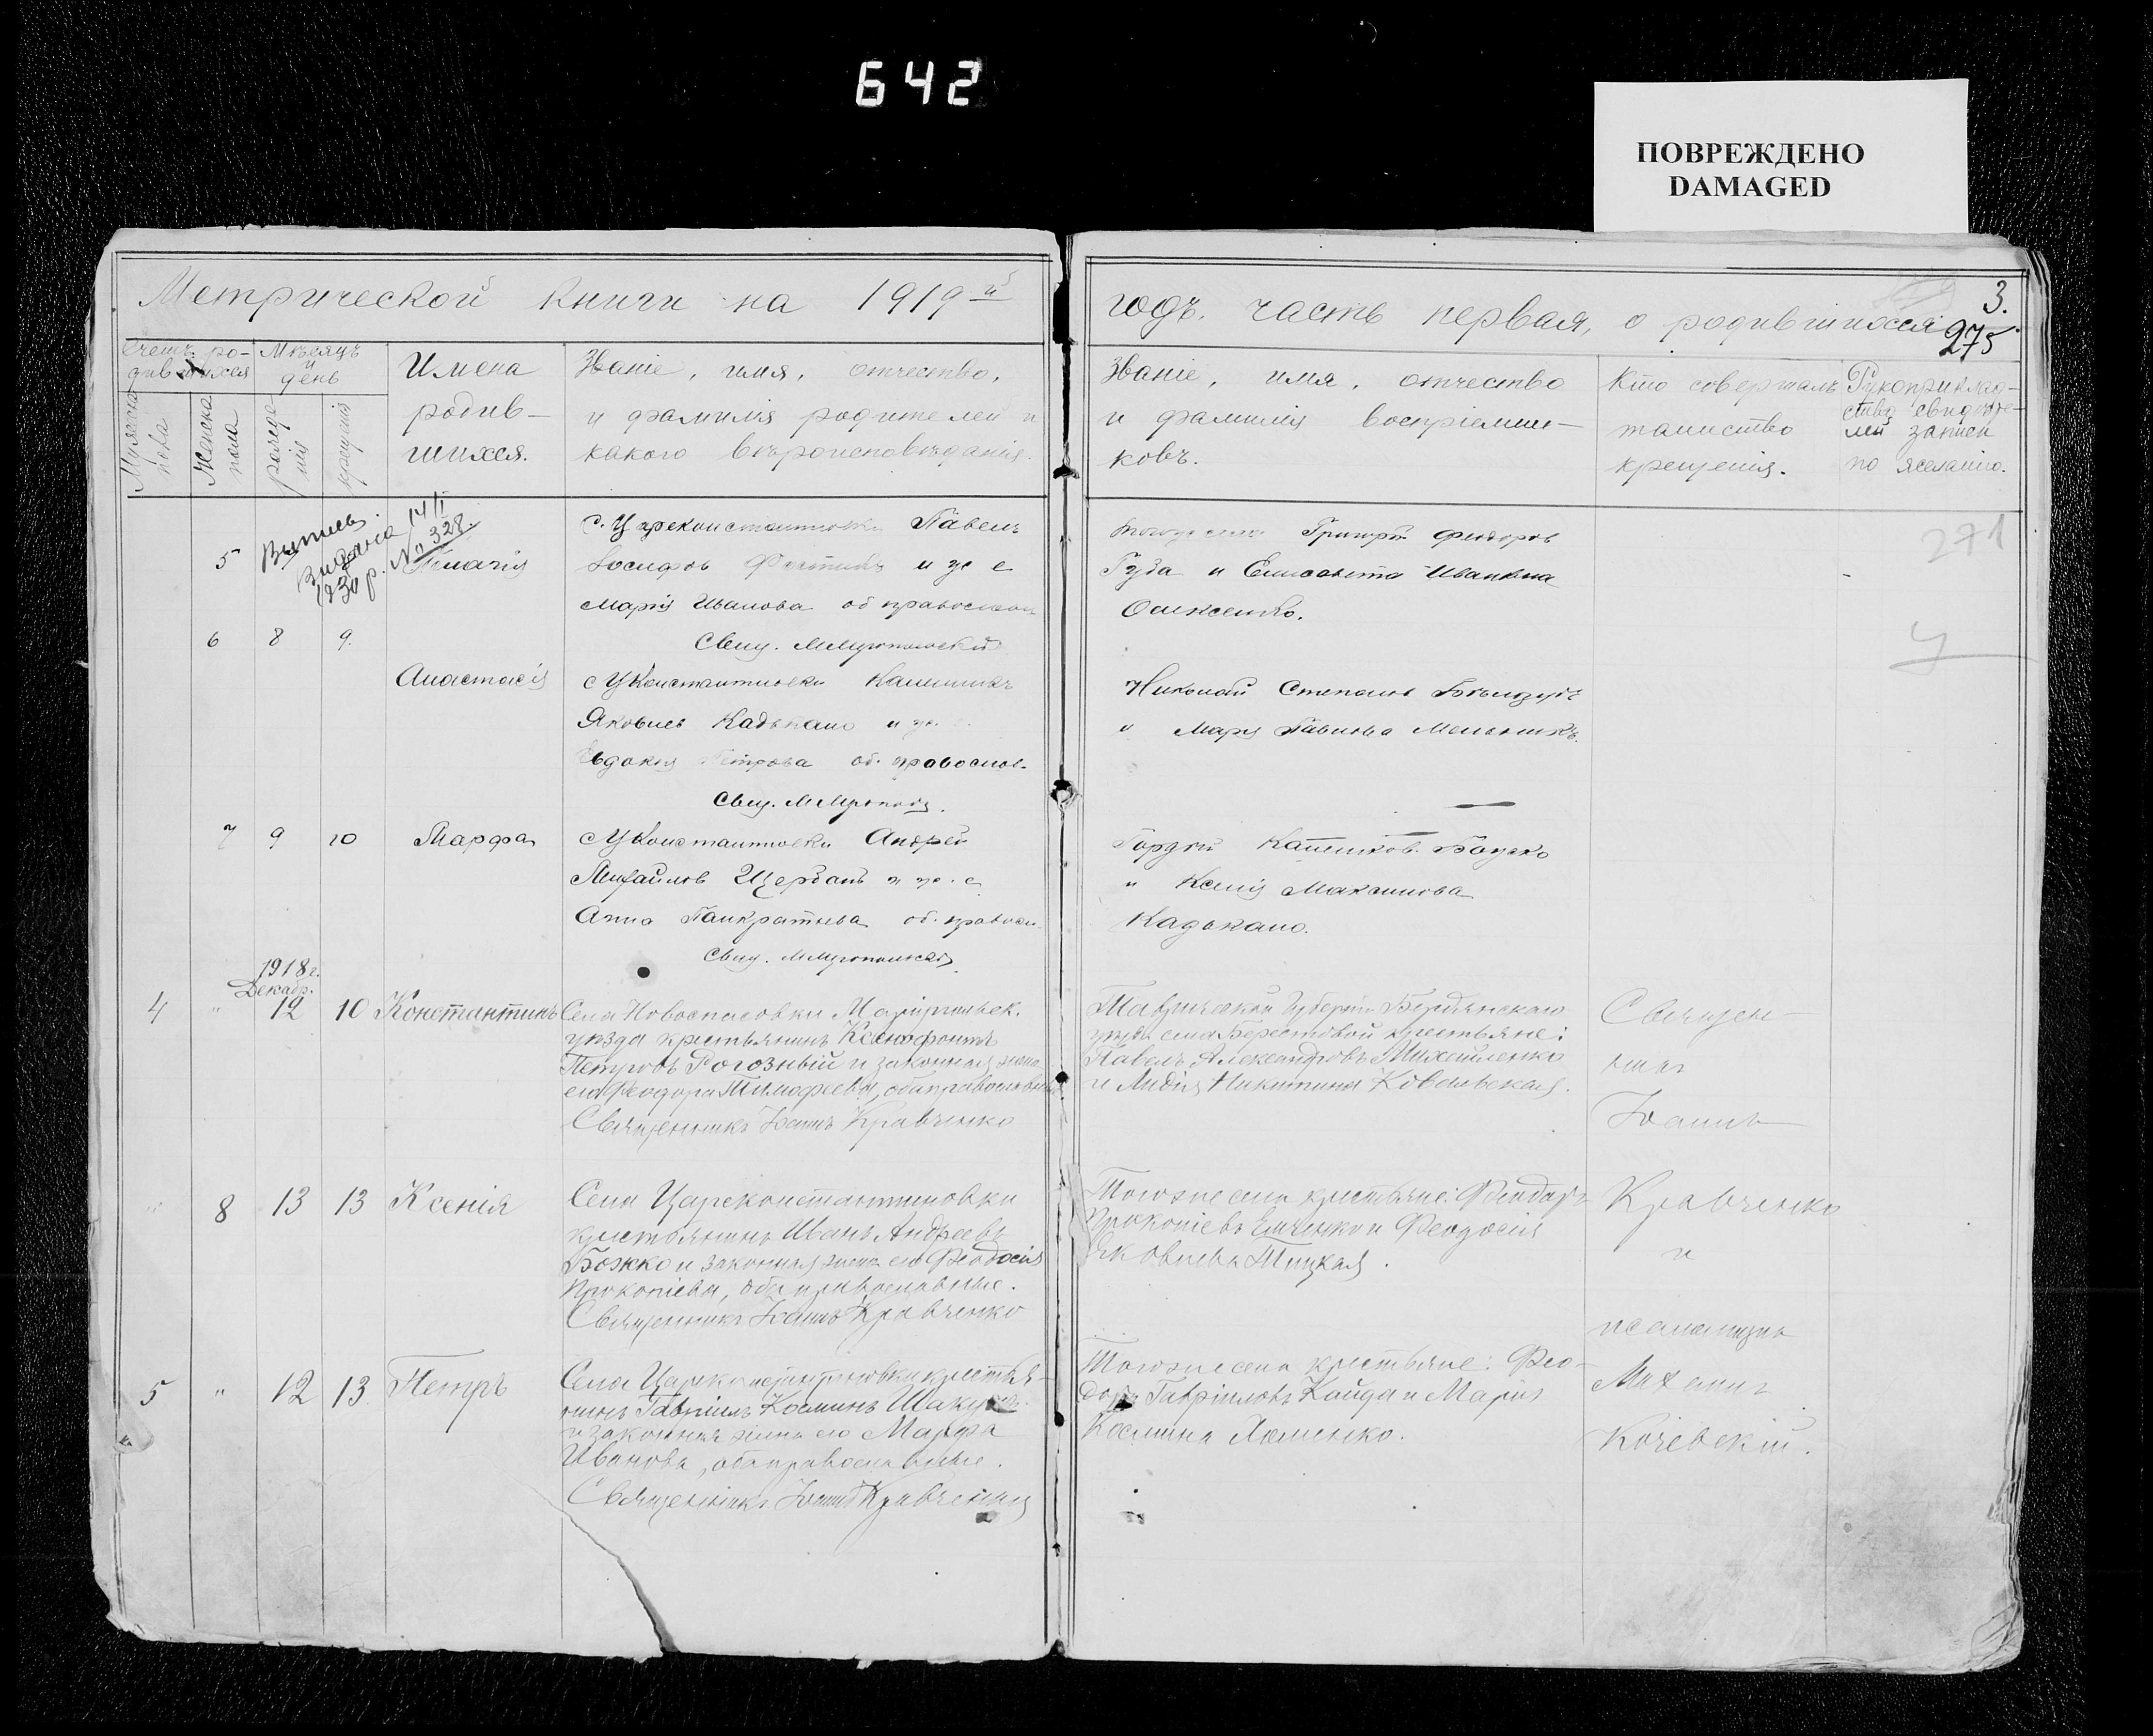 642
ПОВРЕЖДЕНО
DAMAGED
Метрической книги на 1919 й
годъ. часть первая, о родившихся
3.
275
счетъ ро-
дившихся
Мужеска
пола
Женска
пола
Мѣсяцъ
и
день
рожде-
нія
крещенія
Имена
родив-
шихся.
Званіе, имя, отчество,
и фамилія родителей и
какого вѣроисповѣданія.
Званіе, имя, отчество
и фамилія воспріемни-
ковъ.
Кто совершалъ
таинство
крещенія.
Рукоприклад-
ство свидѣте-
лей записи
по желанію.
14/I
1930 р. № 328.
5
Павелъ
Іосифовъ и же е
Марія Иванова об православн
Свящ.
Григорій Феодоров
Гуза и Елисавета Иванова
271
6 8 9.
Анастасія
с Ц Константиновки
Яковлев Кадькало и ж.
Евдокія Петрова об. православ.
Свящ.
Николай Степанов
и Марія Павлова Мельникъ.
7 9 10 Марфа
с Ц Константиновки Андрей
Михайлов Щербань и ж. е
Анна Панкратьева об. правосл.
Свящ.
Гордій
и Ксенія Максимова
Кадькало.
1918 г.
Декабр.
4 " 12 10 Константинъ
Села Новоспасовки Маріупольск.
уѣзда крестьянинъ Ксенофонтъ
Петровъ Рогозный и законная жена
его Феодора Тимофеева, оба православные
Священникъ Іоаннъ Кравченко
Таврической Губерніи Бердянскаго
уѣзда села Берестовой крестьяне:
Павелъ Александровъ Михайленко
и Лидія Никитина Ковальская.
Священ-
никъ
Іоаннъ
Кравченко
и
псаломщикъ
Михаилъ
" 8 13 13 Ксенія
Села Царсконстантиновки
крестьянинъ Иванъ Андреевъ
Божко и законная жена его Феодосія
Прокопіева, оба православные.
Священникъ Іоаннъ Кравченко
Тогоже села крестьяне: Феодоръ
Прокопіевъ и Феодосія
Яковлева
5 " 12 13 Петръ
Села Царсконстантиновки крестья-
нинъ Гавріилъ Косминъ
и законная жена его Марфа
Иванова, оба православные.
Священникъ Іоаннъ Кравченко
Тогоже села крестьяне: Фео-
доръ Гавріиловъ Кайда и Марія
Космина